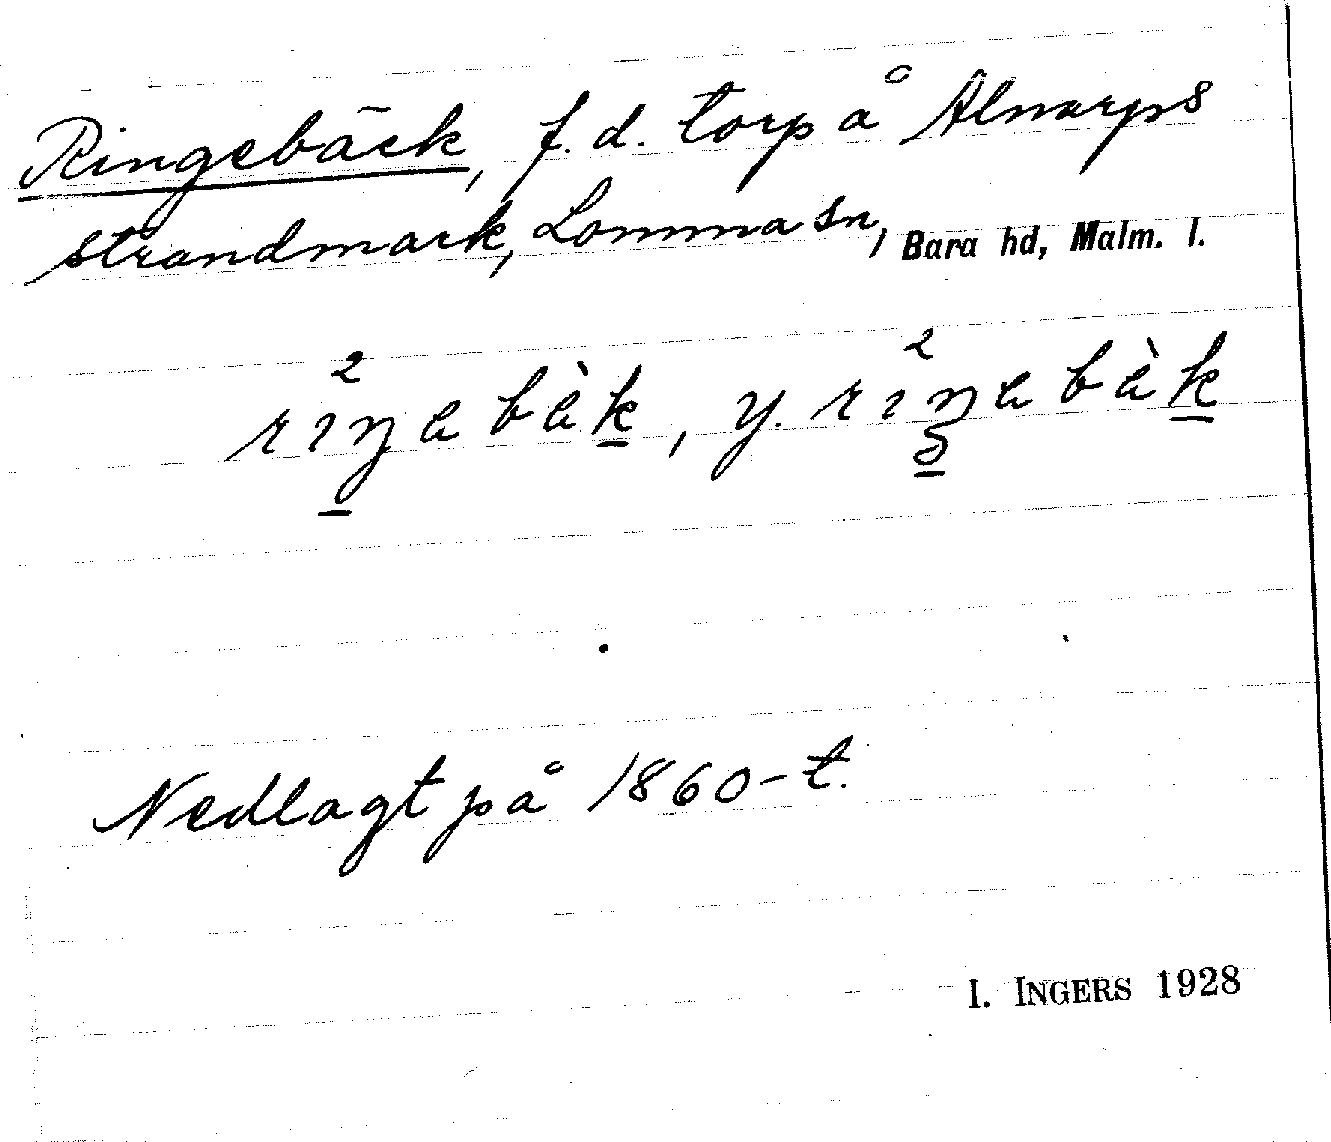 Ringebäck, f.d. torp å Alnarps
strandmark, Lomma sn, Bara hd, Malm. l.
y.
Nedlagt på 1860-t.
I. INGERS 1928